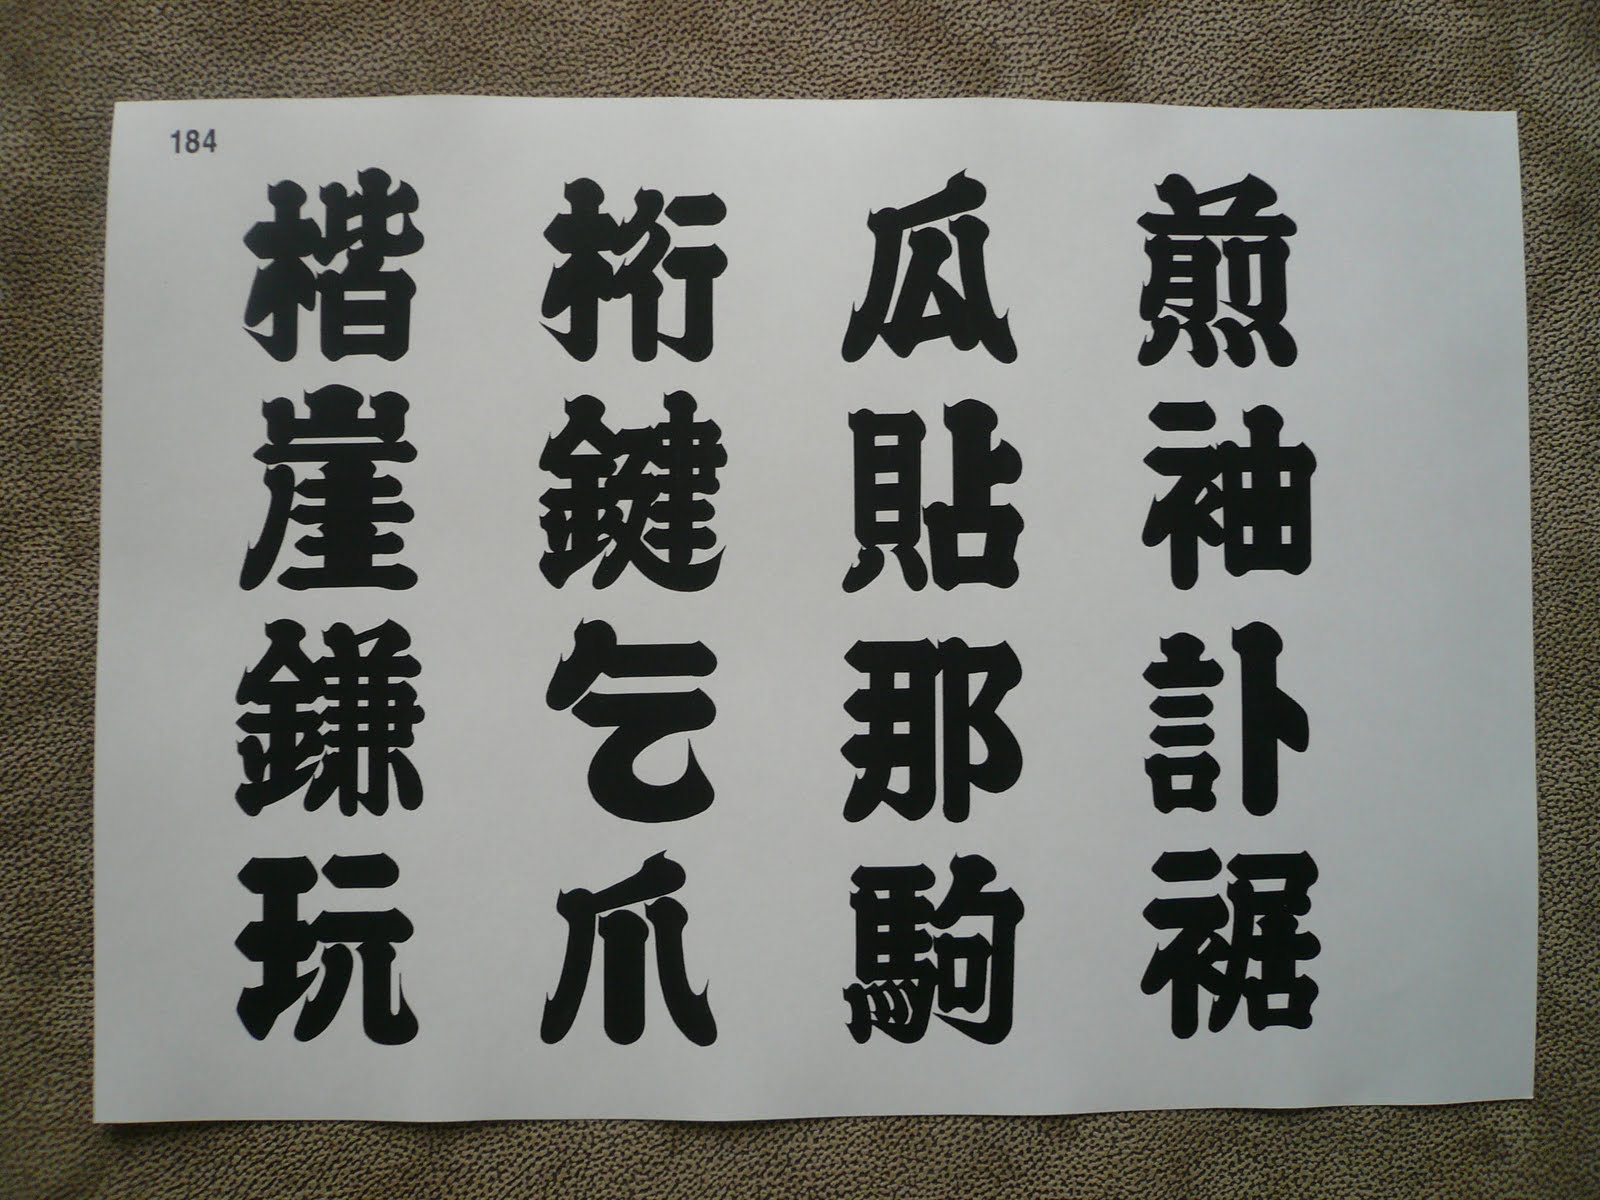 184
楷崖鎌玩
桁鍵乞爪
瓜貼那駒
煎袖訃裾